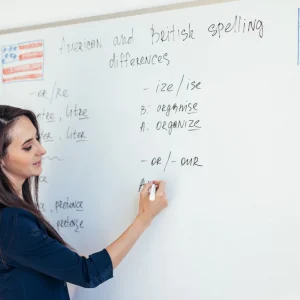 American and British spelling
differences
-er/re
litre, liter
- ize / ise
B: organise
A: organize
- or / - our
A
pretence
pretense